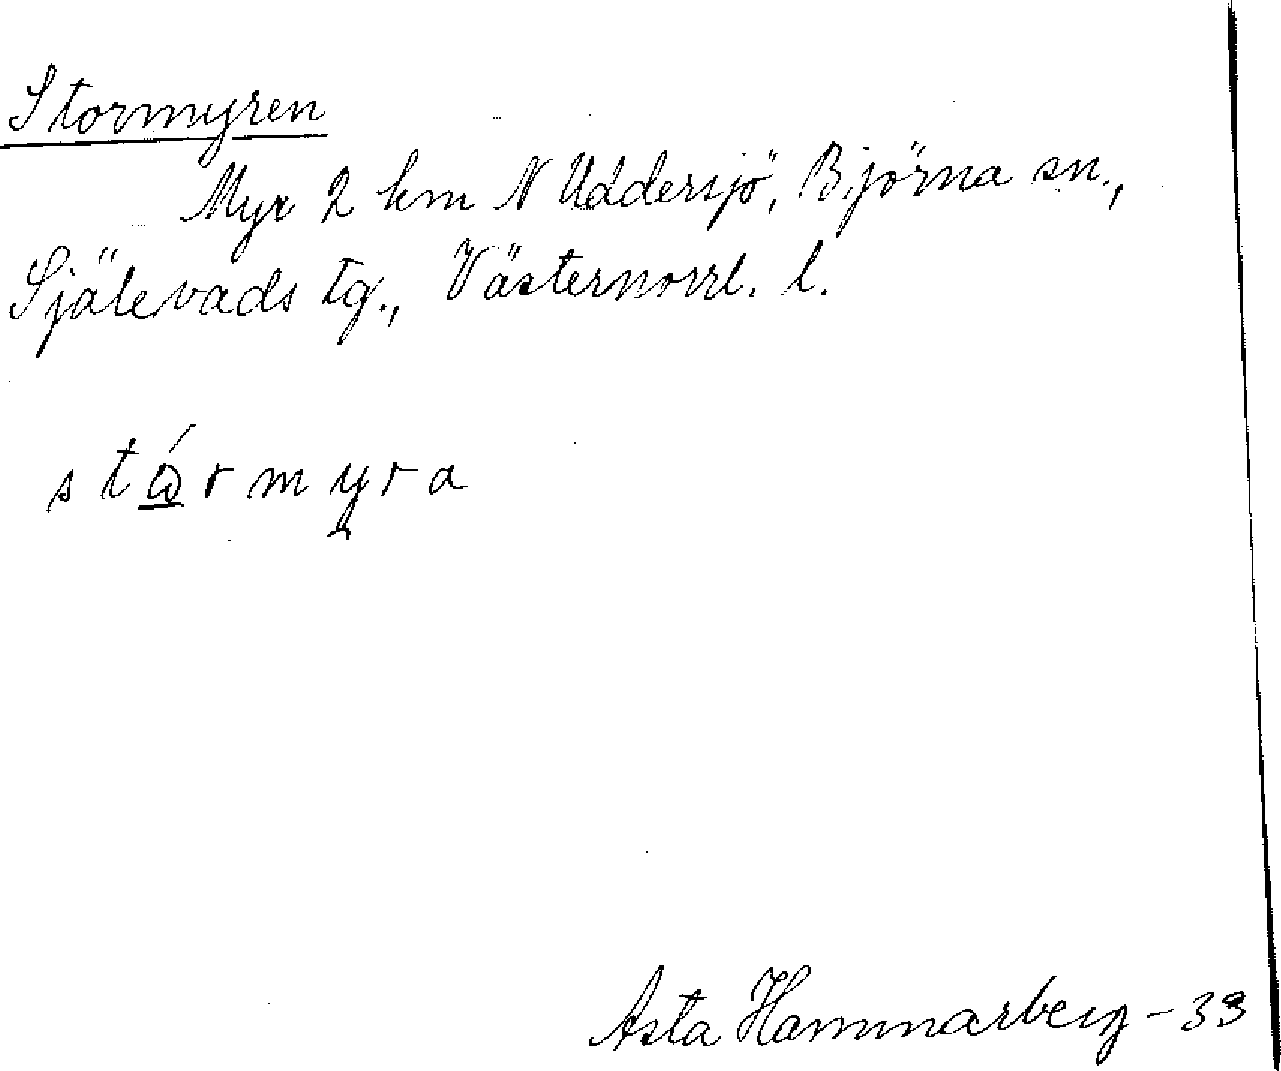 Stormyren
Myr 2 km N Uddersjö, Björna sn.,
Själevads tg., Västernorrl. l.
stórmyra
Asta Hammarberg - 33